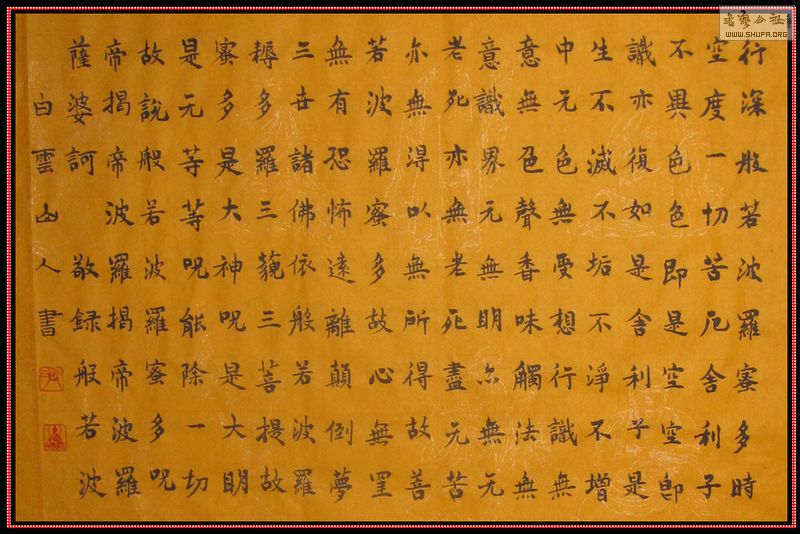 行深般若波羅蜜多時
空度一切苦厄舍利子
不異色色即是空空即
識亦復如是舍利子是
生不滅不垢不淨不增
中无色無受想行識無
意無色聲香味觸法無
意識界无無明亦無无
老死亦無老死盡无苦
亦無得以無所得故菩
若波羅蜜多故心無罣
無有恐怖遠離顛倒夢
三世諸佛依般若波羅
耨多羅三藐三菩提故
蜜多是大神呪是大明
是无等等呪能除一切
故說般若波羅蜜多呪
帝揭帝波羅揭帝波羅
薩婆訶 敬録般若波
白雲山人書
書藝公社
WWW.SHUFA.ORG